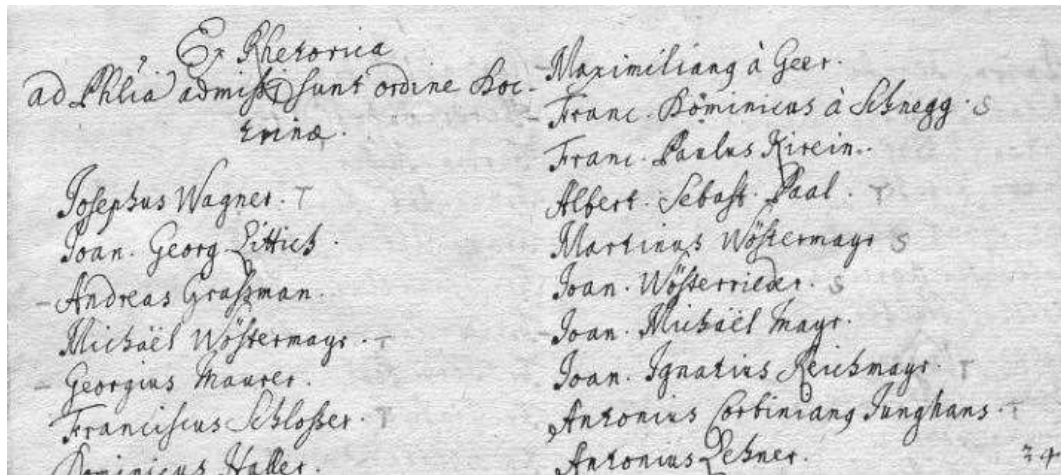 Ex Rhetorica
ad Phliã admissi sunt ordine Doc-
trinæ.
Josephus Wagner. T
Joan. Georg Littich.
- Andreas Graßman.
Michaël Wöstermayr. T
- Georgius Maurer.
Franciscus Schlosser. T
Dominicus Haller.
- Maximilianq à Geer.
Franc. Dominicus à Schnegg. S
Franc. Paulus Kirein.
Albert. Sebast. Paal. T
Martinus Wöstermayr S
Joan. Wösterrieder. S
- Joan. Michaël Mayr.
Joan. Ignatius Reichmayr. T
Antonius Corbinianq Junghans. T
Antonius Lehner.